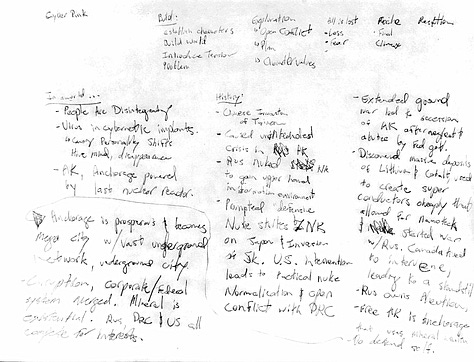 Cyber Punk
Build:
establish characters
Build world
Introduce Tension
Problem
Explanation
Open Conflict
Plan
All is lost
- Loss
- Fear
Final
Climax
In a world...
- People Are Disintegrating
- Virus in cybernetic implants.
Personality shifts
Hive mind, disappearance
- AK, Anchorage powered
by last nuclear reactor.
Anchorage is prosperous & becomes
Mega city w/ vast underground
network, underground city.
- Corruption, corporate/Federal
system merged. Mineral is
essential. Rus, PRC & US all
compete for interests.
History:
- Chinese Invasion
of Taiwan
- Caused
Crisis in NK
- Rus.
to gain upper hand
information environment
- Preemptual defensive
Nuke strikes NK
on Japan & Invasion
of SK. U.S. intervention
leads to tactical nuke
Normalization & open
conflict with PRC
- Extended ground
war led to secession
of AK after neglect &
abuse by Fed gov't.
- Discovered massive deposits
of Lithium & Cobalt, used
to create super
conductors cheaply that
allowed for nanotech
& started war
w/ Rus. Canada tried
to intervene,
leading to a standstill
- Rus owns Aleutian.
- Free AK is Anchorage
that uses mineral
to defend self.